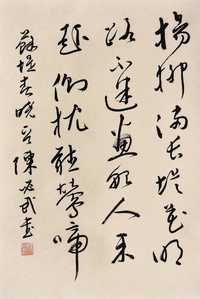 楊柳滿長堤花明
路不迷畫船人未
起側枕聽鶯啼
蘇堤春曉 陳 武書